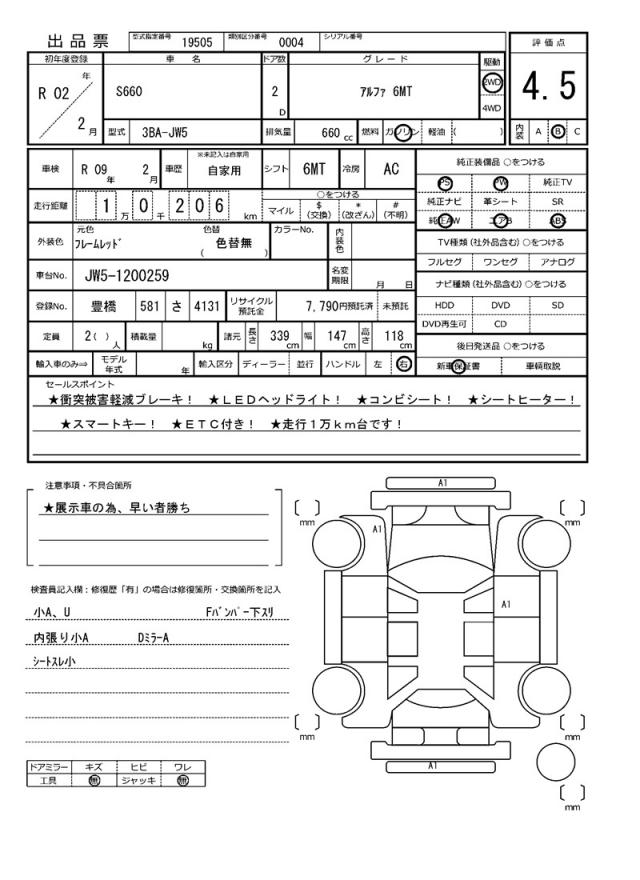 出品票 型式指定番号 19505 類別区分番号 0004 シリアル番号
初年度登録 車名 ドア数 グレード 駆動 評価点
R 02 年 2 月 S660 2 D アルファ 6MT 2WD 4WD 4.5
型式 3BA-JW5 排気量 660 cc 燃料 ガソリン 軽油 ( ) 内装 A B C
車検 R 09 年 2 月 車歴 ※未記入は自家用 自家用 シフト 6MT 冷房 AC
走行距離 1 万 0 千 2 0 6 km ○をつける マイル $ (交換) * (改ざん) # (不明)
外装色 元色 フレームレッド 色替 色替無 ( ) カラーNo. 内装色
車台No. JW5-1200259 名変期限 月 日
登録No. 豊橋 581 さ 4131 リサイクル預託金 7,790円預託済 未預託
定員 2 ( ) 人 積載量 kg 諸元 長さ 339 cm 幅 147 cm 高さ 118 cm
輸入車のみ⇒ モデル年式 年 輸入区分 ディーラー 並行 ハンドル 左 右
純正装備品 ○をつける
PS PW 純正TV
純正ナビ 革シート SR
純正AW エアB ABS
TV種類 (社外品含む) ○をつける
フルセグ ワンセグ アナログ
ナビ種類 (社外品含む) ○をつける
HDD DVD SD
DVD再生可 CD
後日発送品 ○をつける
新車保証書 車輌取説
セールスポイント
★衝突被害軽減ブレーキ! ★LEDヘッドライト! ★コンビシート! ★シートヒーター!
★スマートキー! ★ETC付き! ★走行1万km台です!
注意事項・不具合箇所
★展示車の為、早い者勝ち
検査員記入欄:修復歴「有」の場合は修復箇所・交換箇所を記入
小A、U Fバンパー下スリ
内張り小A DミラーA
シートスレ小
ドアミラー キズ ヒビ ワレ
工具 無 ジャッキ 無
A1
mm mm
A1
A1
mm mm
A1
mm